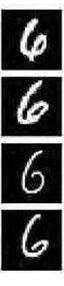 6
6
6
6